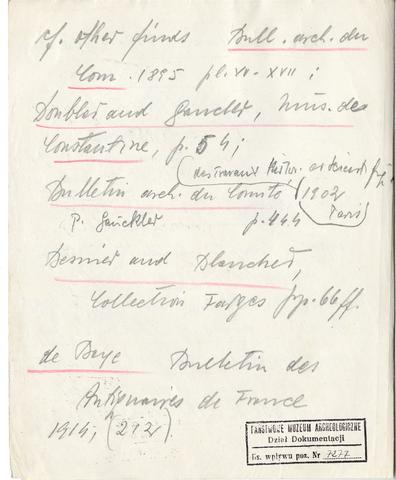 cf. other finds Bull. arch. du
Com. 1895 pl. XV - XVII ;
Doublet and Gauckler, Mus. de
Constantine, p. 54 ;
(des travaux histor. et scientif
Bulletin arch. du Comité (1902
Paris)
P. Gauckler p. 444
Besnier and Blanchet,
Collection Farges pp. 66 ff.
de Baye Bulletin des
Antiquaires de France
1914; (212).
PAŃSTWOWE MUZEUM ARCHEOLOGICZNE
Dział Dokumentacji
Ks. wpływu poz. Nr 7277